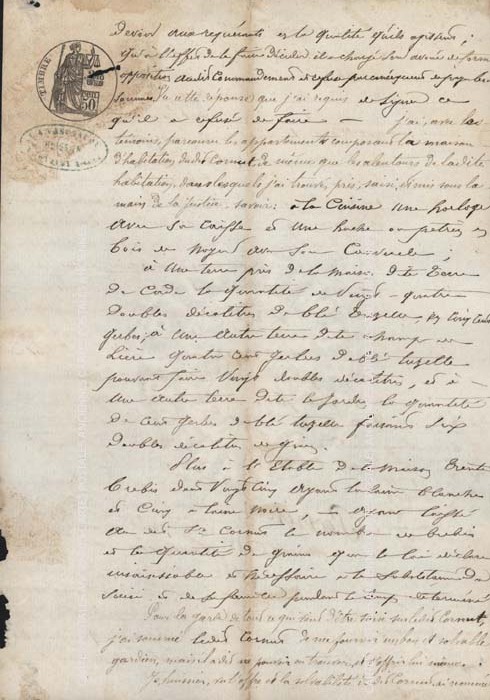 TIMBRE
50
devoir aux requérants et la qualité qu'ils agissent ;
qu'à l'effet de la faire décider il a chargé son avoué de former
opposition audit Commandement
sommé. Vu cette réponse que j'ai requis de signer ce
qu'il a refusé de faire — j'ai, avec les
témoins, parcouru les appartements composant la maison
d'habitation dudit Cornut, de même que les alentours de ladite
habitation, dans lesquels j'ai trouvé, pris, saisi, et mis sous la
main de la justice, savoir : à la Cuisine une horloge
avec sa caisse et une hache ou pétrin en
bois de noyer avec son Couvercle ;
à une terre près de la maison dite Terre
de la quantité de Vingt-quatre
doubles décalitres de blé tuzelle, en cinq cents
gerbes ; à une autre terre dite champ
quatre cent gerbes de blé tuzelle
pouvant faire Vingt doubles décalitres, et à
une autre terre dite la quantité
de cent gerbes de blé tuzelle faisant six
doubles décalitres de grains.
Plus à l'Etable de la Maison trente
brebis dont Vingt cinq ayant la laine blanche
et Cinq à laine noire, — ayant laissé
au dit Sr Cornut le nombre de brebis
et la quantité de grains que la loi déclare
insaisissable et nécessaire à la subsistance du
saisi et de sa famille pendant le temps déterminé
Pour la garde de tout ce qui vient d'être saisi sur ledit Cornut,
j'ai sommé ledit Cornut de me fournir un bon et solvable
gardien, mais il a dit ne pouvoir en trouver, et s'offrir lui même :
Je soussigné, vu l'offre et la solvabilité dudit Cornut ai nommé